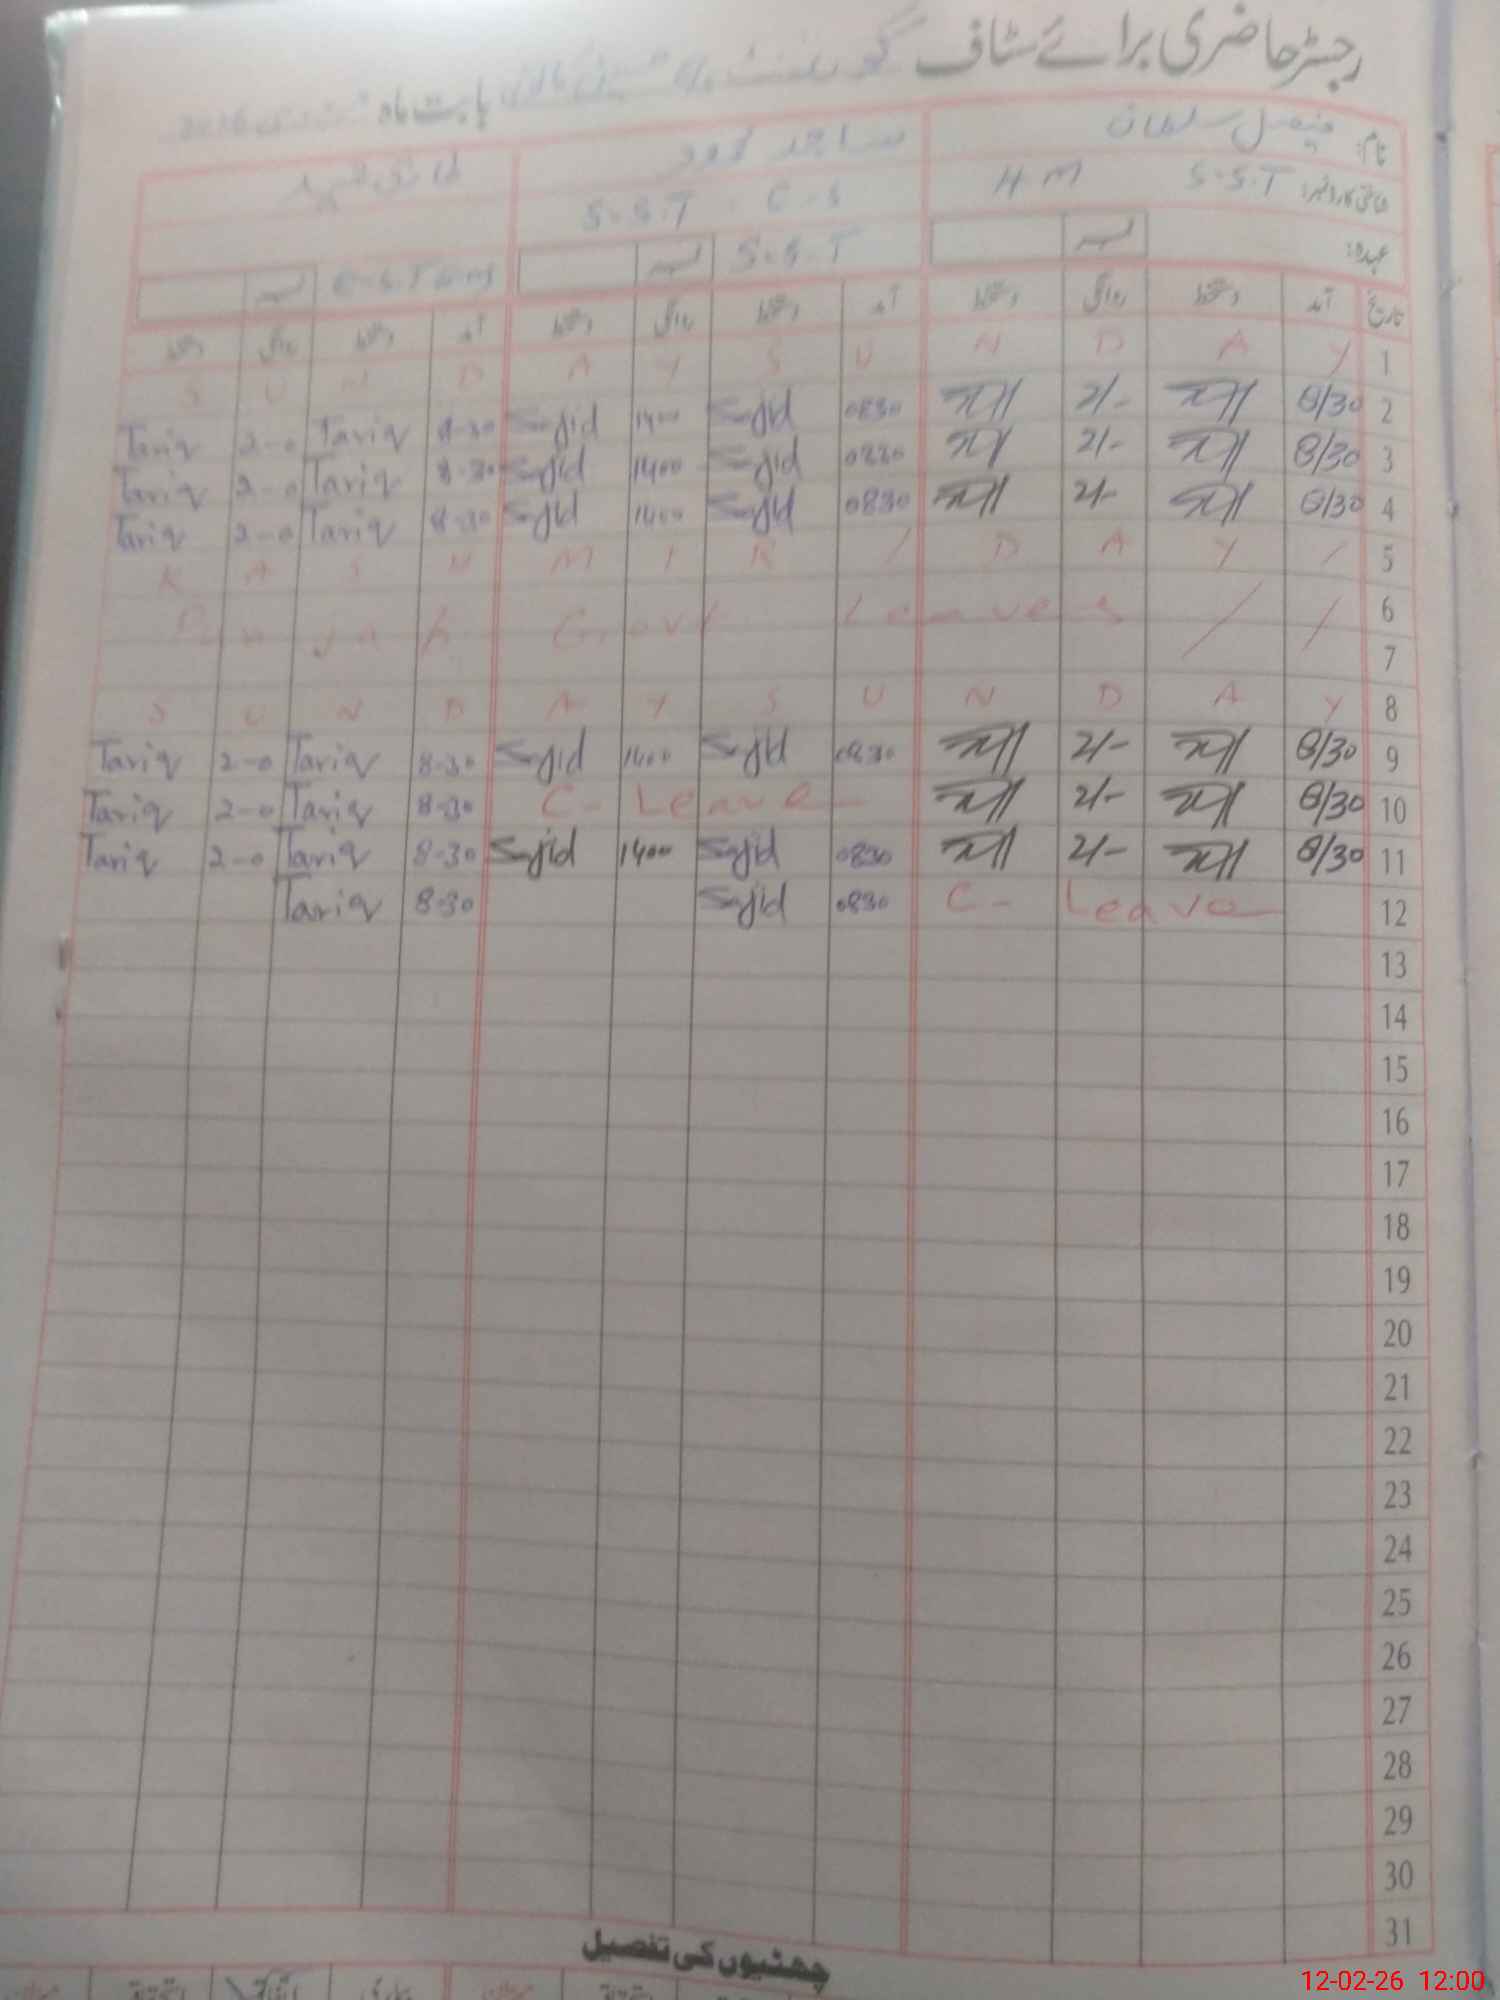 رجسٹر حاضری برائے سٹاف گورنمنٹ بابت ماہ
نام: فیصل سلطان ساجد محمود
شناختی کارڈ نمبر: S.S.T H.M S.S.T - C-S
عہدہ: S.S.T
تاریخ آمد دستخط روانگی دستخط آمد دستخط روانگی دستخط آمد دستخط روانگی دستخط
1 S U N D A Y S U N D A Y
2 8/30 2/- 0830 Sajid 1400 Sajid 8-30 Tariq 2-0 Tariq
3 8/30 2/- 0830 Sajid 1400 Sajid 8-30 Tariq 2-0 Tariq
4 8/30 2/- 0830 Sajid 1400 Sajid 8-30 Tariq 2-0 Tariq
5 K A S H M I R / D A Y /
6 Govt Leaves / /
7
8 S U N D A Y S U N D A Y
9 8/30 2/- 0830 Sajid 1400 Sajid 8-30 Tariq 2-0 Tariq
10 8/30 2/- C- Leave 8-30 Tariq 2-0 Tariq
11 8/30 2/- 0830 Sajid 1400 Sajid 8-30 Tariq 2-0 Tariq
12 C- Leave 0830 Sajid 8-30 Tariq
13
14
15
16
17
18
19
20
21
22
23
24
25
26
27
28
29
30
31
چھٹیوں کی تفصیل
12-02-26 12:00